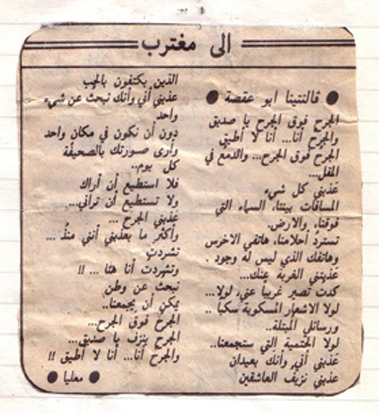 الى مغترب
● ڤالنتينا ابو عقصة ●
الجرح فوق الجرح يا صديق
والجرح أنا... أنا لا أطيق
الجرح فوق الجرح... والدمع في
المقل...
عذبني كل شيء
المسافات بيننا، السماء التي
فوقنا، والارض.
تسترد أحلامنا، هاتفي الاخرس
وهاتفك الذي ليس له وجود.
عذبتني الغربة عنك...
كدت تصير غريبا عني، لولا...
لولا الاشعار المسكوبة سكبا ..
ورسائلي المبتلة..
لولا الحتمية التي ستجمعنا..
عذبني أني وأنك بعيدان
عذبني نزيف العاشقين
الذين يكتفون بالحب
عذبني أني وأنك نبحث عن شيء
واحد
دون أن نكون في مكان واحد
وأرى صورتك بالصحيفة
كل يوم..
فلا استطيع أن أراك
ولا تستطيع أن تراني...
عذبني الجرح ...
وأكثر ما يعذبني أنني منذ ...
تشردت
وتشردت أنا هنا ... !!
نبحث عن وطن
يمكن أن يجمعنا..
الجرح فوق الجرح...
الجرح ينزف يا صديق...
والجرح أنا... أنا لا أطيق !!
● معليا ●